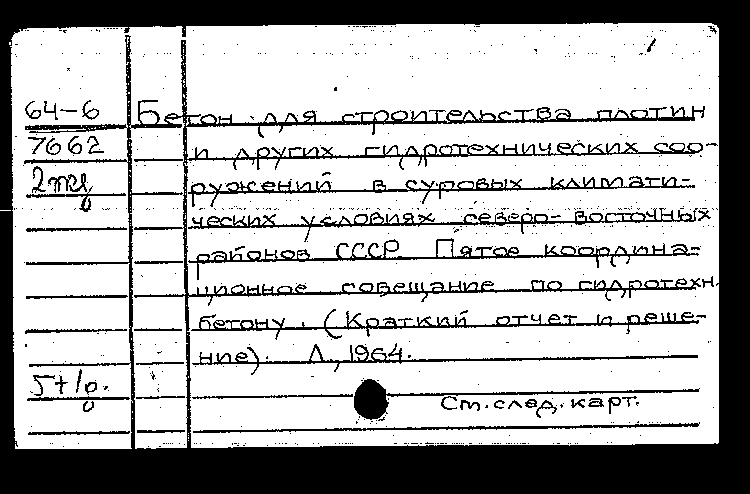 64-6 Бетон для строительства плотин
7662 и других гидротехнических соо-
ружений в суровых климати-
ческих условиях северо-восточных
районов СССР. Пятое координа-
ционное совещание по гидротехн.
бетону. (Краткий отчет и реше-
ние). Л., 1964.
Ст. след. карт.